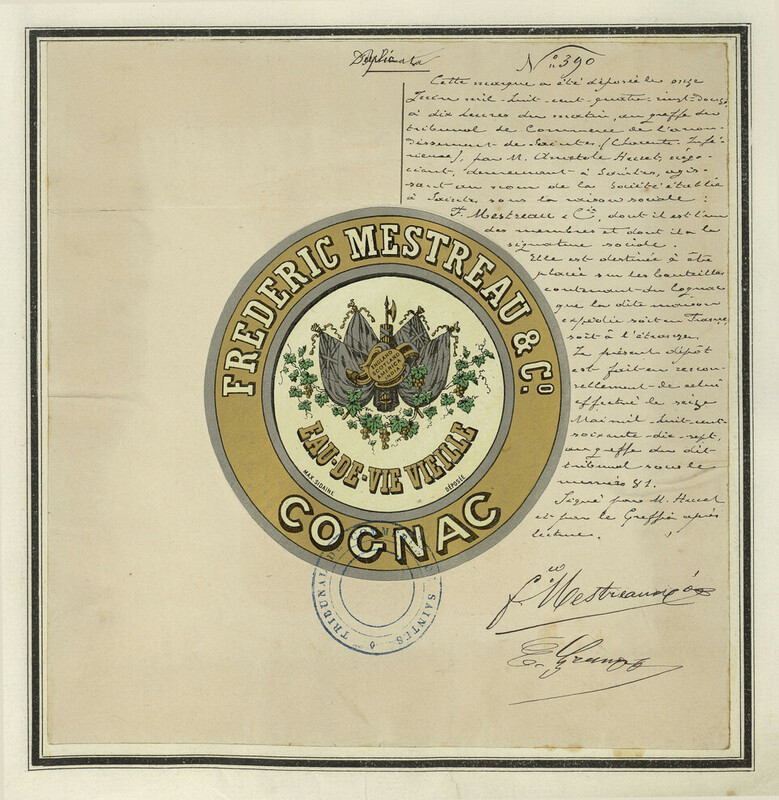 Duplicata
N° 390
Cette marque a été déposée le onze
Juin mil-huit-cent-quatre-vingt-douze,
à dix heures du matin, au greffe du
tribunal de Commerce de l'arron-
dissement de Saintes (Charente-Infé-
rieure), par M. Anatole Huet, négo-
ciant, demeurant à Saintes, agis-
sant au nom de la Société établie
à Saintes, sous la raison sociale:
F. Mestreau & Cie, dont il est l'un
des membres et dont il a la
signature sociale.
Elle est destinée à être
placée sur les bouteilles
contenant du Cognac
que la dite maison
expédie soit en France,
soit à l'étranger.
Le présent dépôt
est fait en renou-
vellement de celui
effectué le seize
Mai mil-huit-cent-
soixante-dix-sept,
au greffe du dit
tribunal sous le
numéro 81.
Signé par M. Huet
et par le Greffier après
lecture.
FREDERIC MESTREAU & Co
ENGLAND
SCOTLAND
AMERICA
INDIA
EAU-DE-VIE VIEILLE
MAX SIDAINE
DÉPOSÉE
COGNAC
TRIBUNAL DE
SAINTES
F. Mestreau & Co